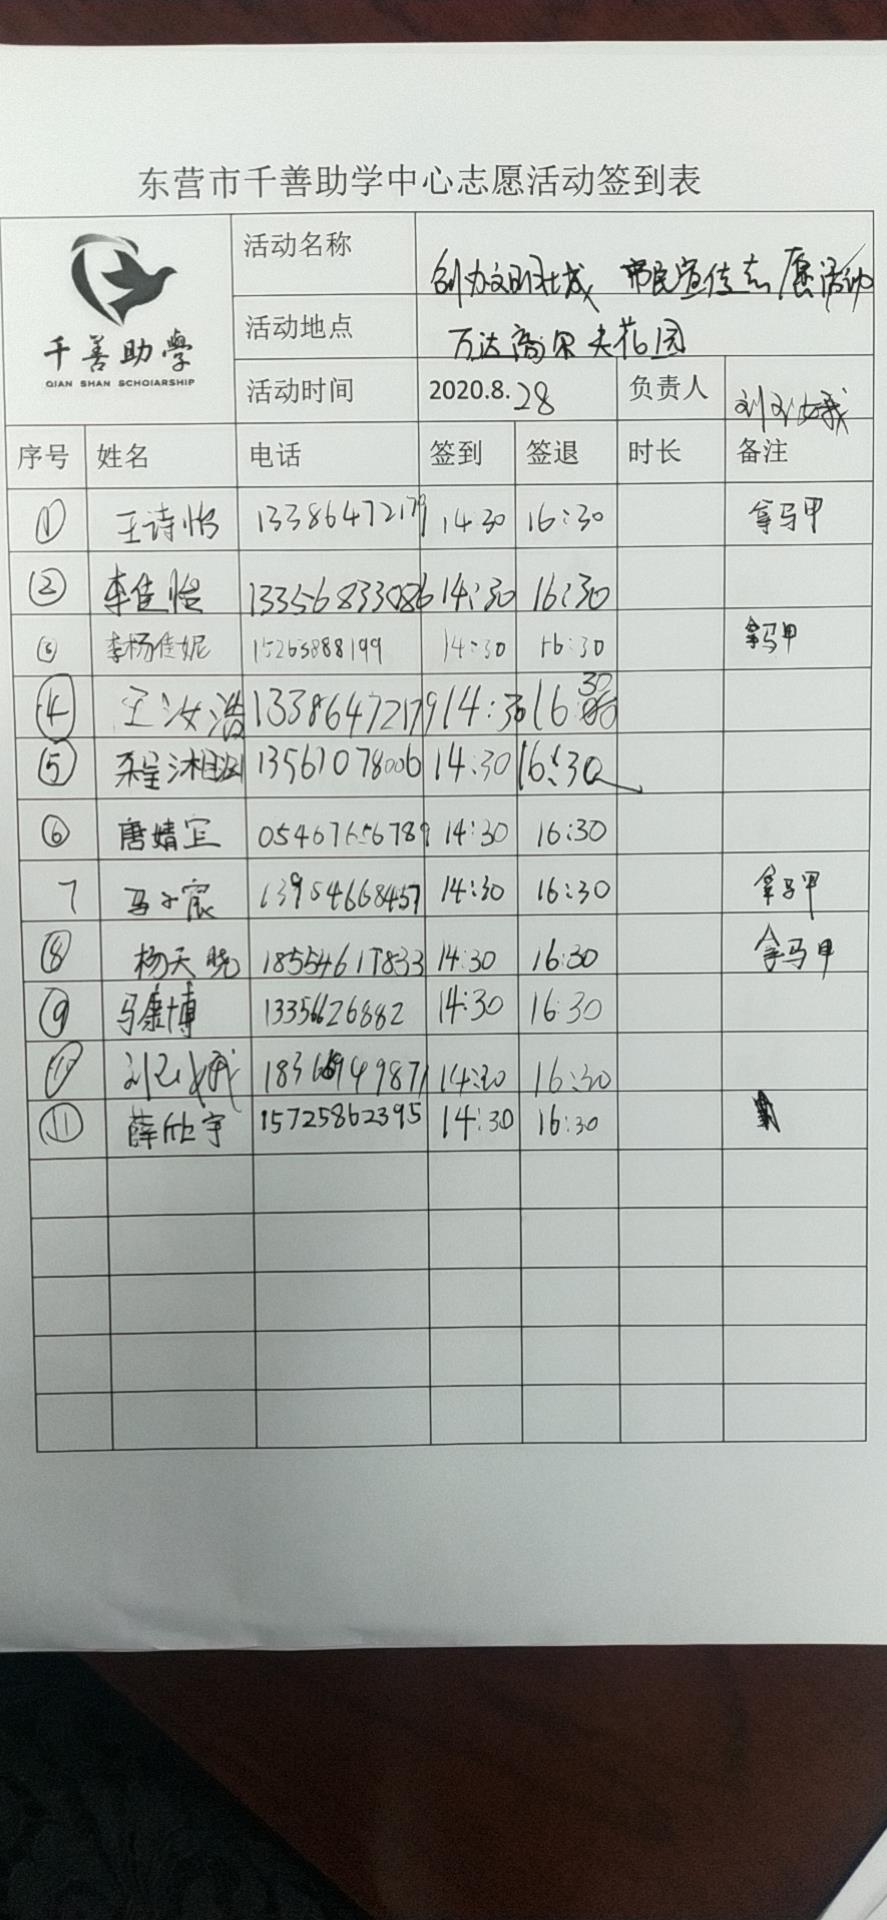 东营市千善助学中心志愿活动签到表
千善助学
QIAN SHAN SCHOIARSHIP
活动名称 创办文明 市民宣传志愿活动
活动地点 万达高尔夫花园
活动时间 2020.8.28 负责人 刘
序号 姓名 电话 签到 签退 时长 备注
① 王诗怡 13386472179 14:30 16:30 拿马甲
② 李佳怡 13356833086 14:30 16:30
③ 李杨佳妮 15263888199 14:30 16:30 拿马甲
④ 王汝浩 13386472179 14:30 16 30
⑤ 13561078006 14:30 16:30
⑥ 唐婧宜 05467656789 14:30 16:30
7 马子宸 13954668457 14:30 16:30 拿马甲
⑧ 杨天晓 18554617833 14:30 16:30 拿马甲
⑨ 马康博 13356626882 14:30 16:30
刘 14:30 16:30
⑪ 薛欣宇 15725862395 14:30 16:30